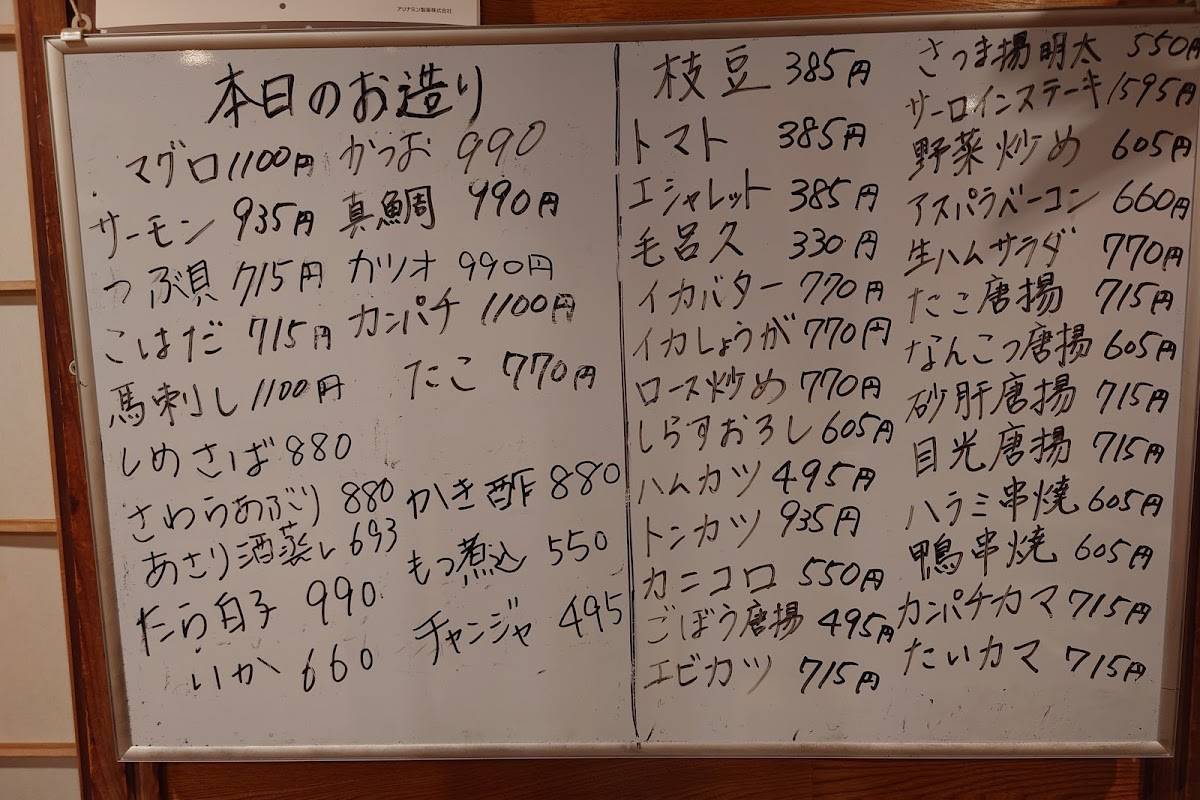 アリナミン製薬株式会社
本日のお造り
マグロ 1100円
サーモン 935円
つぶ貝 715円
こはだ 715円
馬刺し 1100円
しめさば 880
さわらあぶり 880
あさり酒蒸し 693
たら白子 990
いか 660
かつお 990
真鯛 990円
カツオ 990円
カンパチ 1100円
たこ 770円
かき酢 880
もつ煮込 550
チャンジャ 495
枝豆 385円
トマト 385円
エシャレット 385円
毛呂久 330円
イカバター 770円
イカしょうが 770円
ロース炒め 770円
しらすおろし 605円
ハムカツ 495円
トンカツ 935円
カニコロ 550円
ごぼう唐揚 495円
エビカツ 715円
さつま揚明太 550円
サーロインステーキ 1595円
野菜炒め 605円
アスパラベーコン 660円
生ハムサラダ 770円
たこ唐揚 715円
なんこつ唐揚 605円
砂肝唐揚 715円
目光唐揚 715円
ハラミ串焼 605円
鴨串焼 605円
カンパチカマ 715円
たいカマ 715円